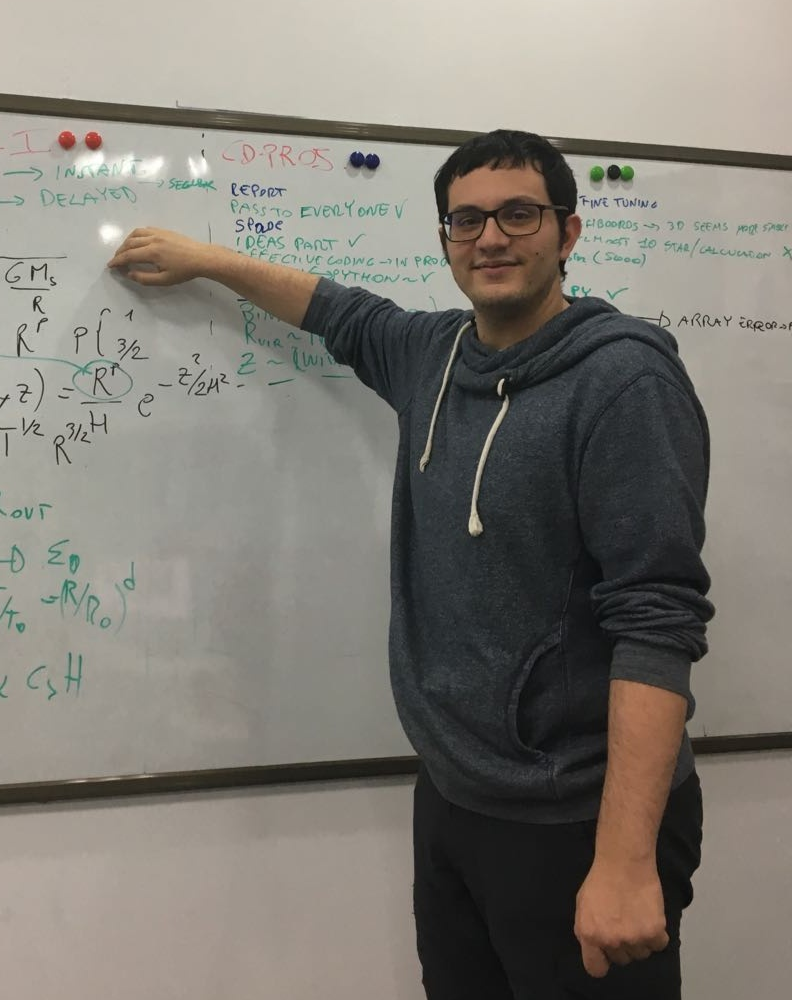 I
→ INSTANT
→ DELAYED →
GMs
R
R^P P{ 1
3/2
, z) = R^P/H e^-z²/2H²
T^1/2 R^3/2
OUT
→ Σ0
T/T0 = (R/R0)^d
α Cs H
CD-PROS
REPORT
PASS TO EVERYONE ✓
SPACE
IDEAS PART ✓
EFFECTIVE CODING → IN PROG
PYTHON ~ ✓
Rvir ~
Z ~
FINE TUNING
→ 3D SEEMS MORE
10 STAR/CALCULATION X
(5000)
PY ✓
→ ARRAY ERROR →